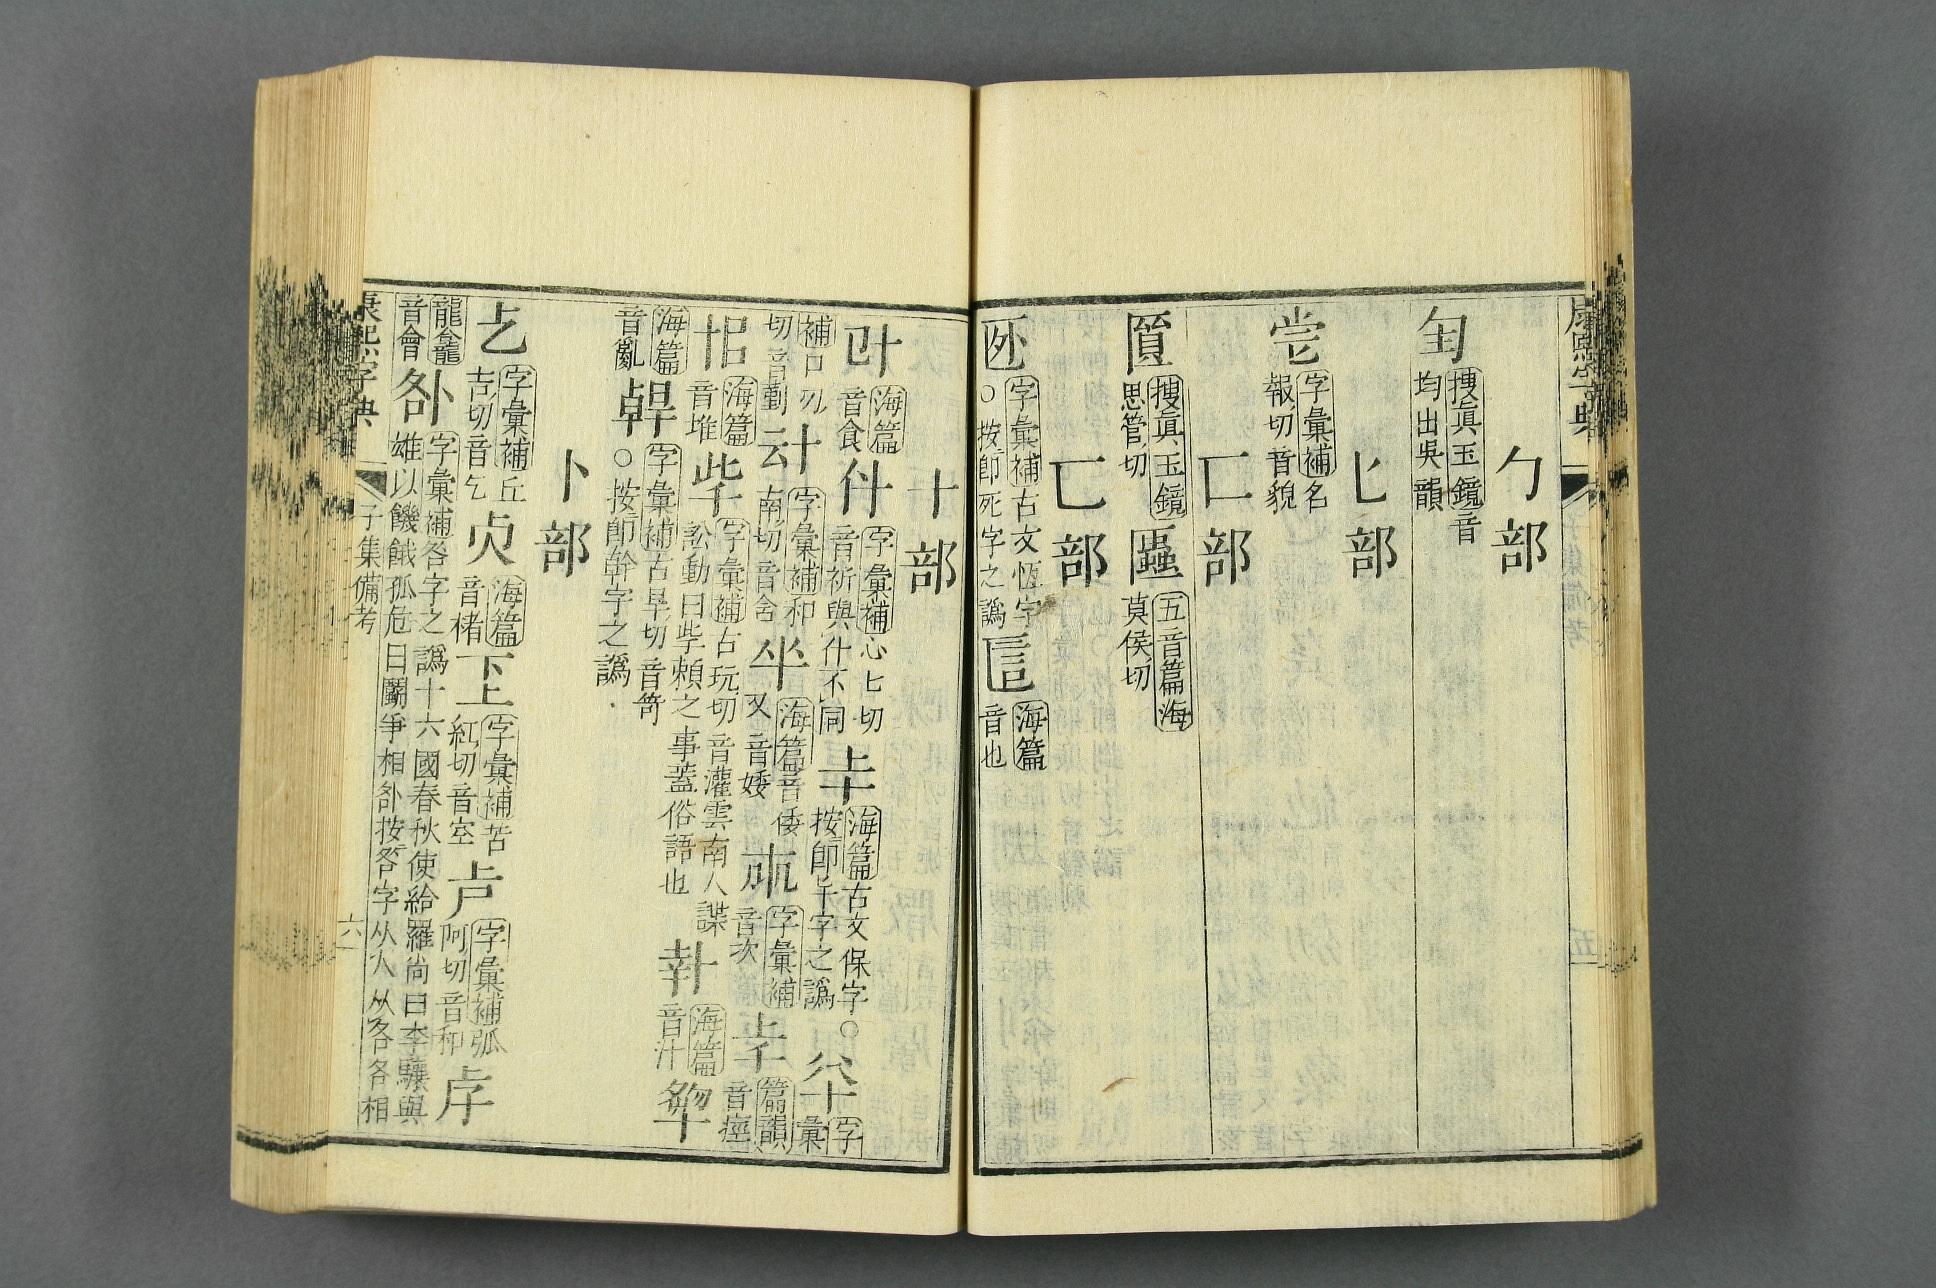 康熙字典
子集備考
五
勹部
搜眞玉鏡音
均出吳韻
匕部
字彙補名
報切音貌
匚部
搜眞玉鏡
思管切
五音篇海
莫侯切
匸部
字彙補古文恆字
○按卽死字之譌
海篇
音也
十部
海篇
音食
什
字彙補心匕切
音祈與什不同
海篇古文保字○
按卽㐄字之譌
字彙
補口切
切音勤
字彙補和
南切音含
海篇音倭
又音婑
字彙補
音次
篇韻
音痙
海篇
音堆
字彙補古玩切音灌雲南人謀
訟動曰㱔賴之事蓋俗語也
海篇
音汁
海篇
音亂
字彙補古旱切音笴
○按卽幹字之譌
卜部
字彙補丘
吉切音乞
海篇
音楮
字彙補苦
紅切音空
字彙補弧
阿切音和
龍龕
音會
卟
字彙補咎字之譌十六國春秋使給羅尚曰李驤與
雄以饑餓孤危日鬭爭相卟按咎字从人从各各相
康熙字典
子集備考
六